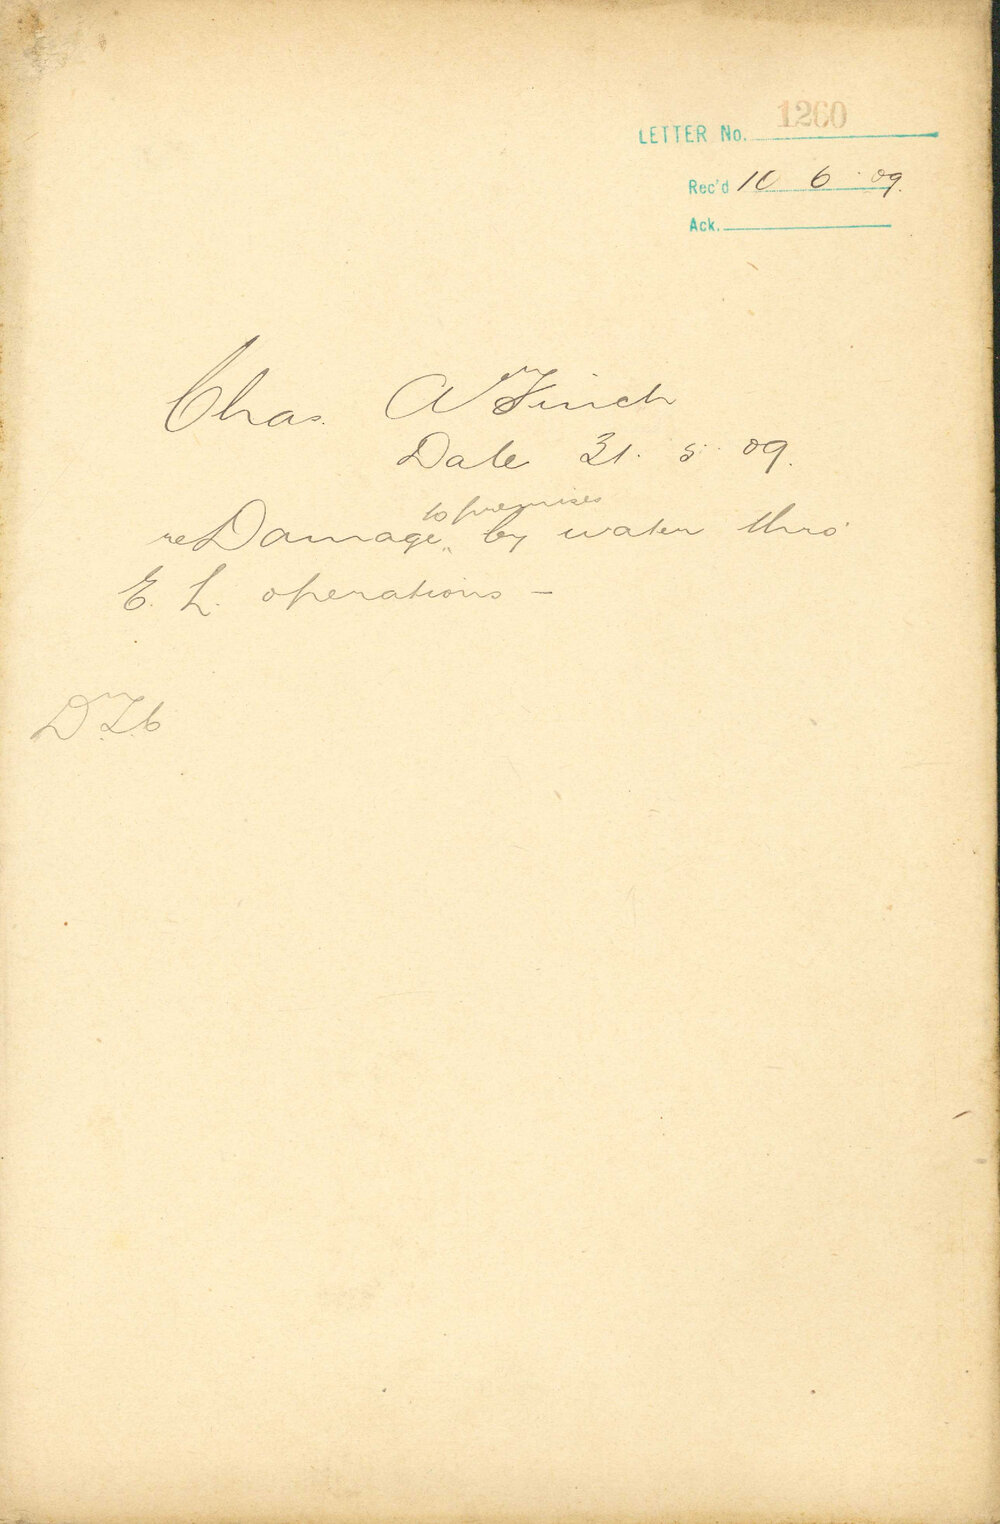 LETTER No. 1260
Rec'd 10 6 09.
Ack.
Chas. A Finch
Date 31. 5. 09.
re Damage to premises by water thro'
E. L. operations -